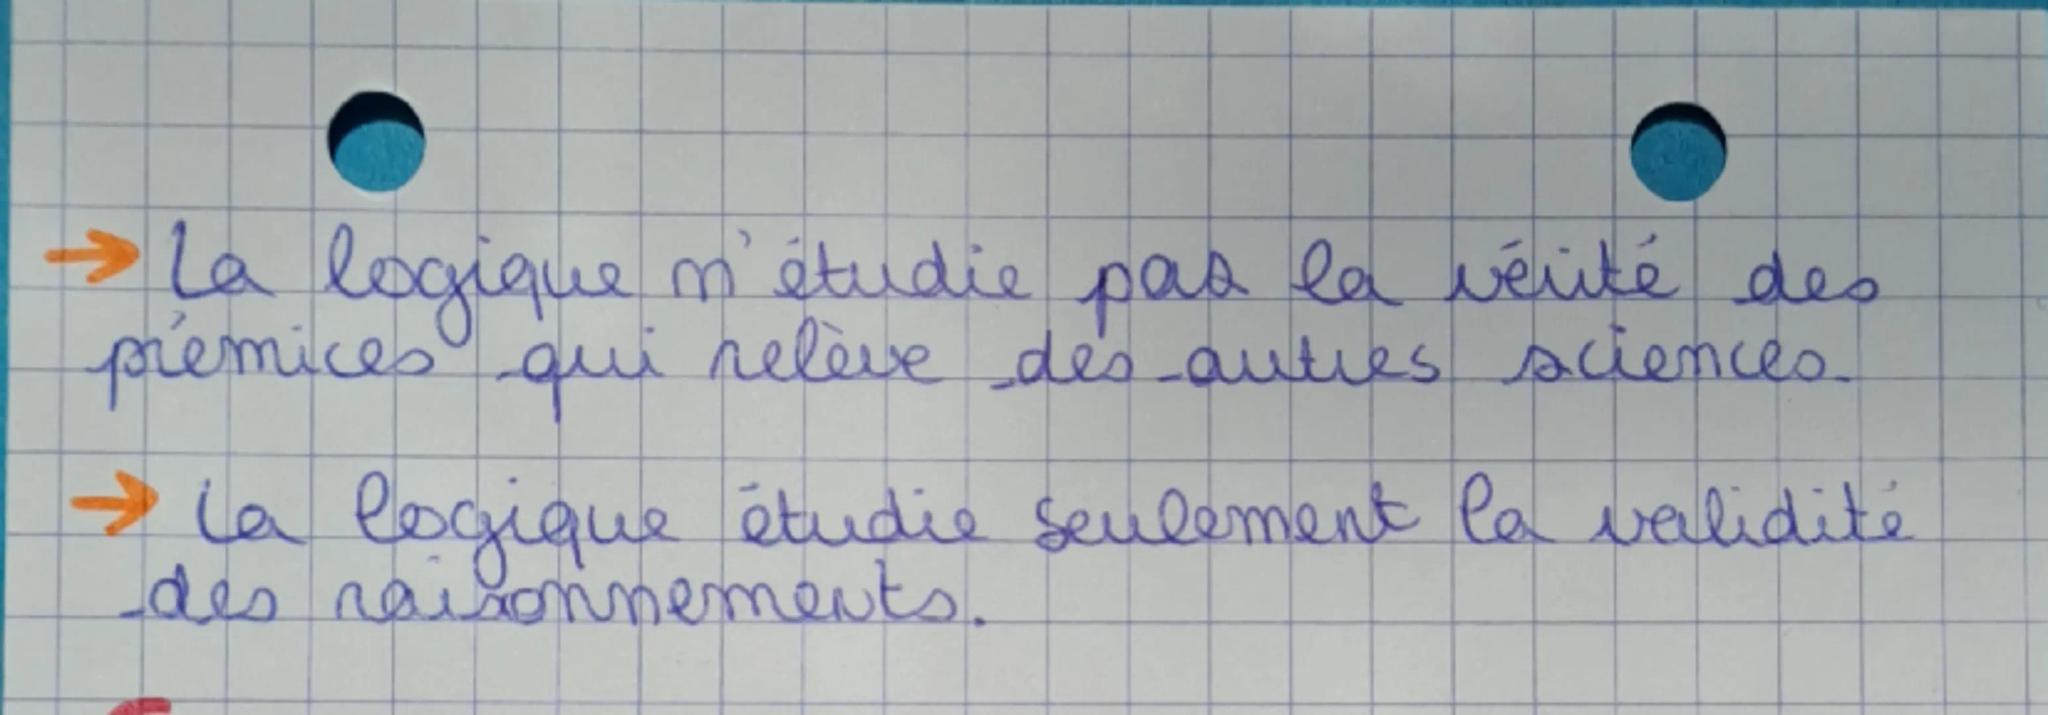 → La logique n'étudie pas la vérité des
prémices qui relève des autres sciences.
→ La logique étudie seulement la validité
des raisonnements.